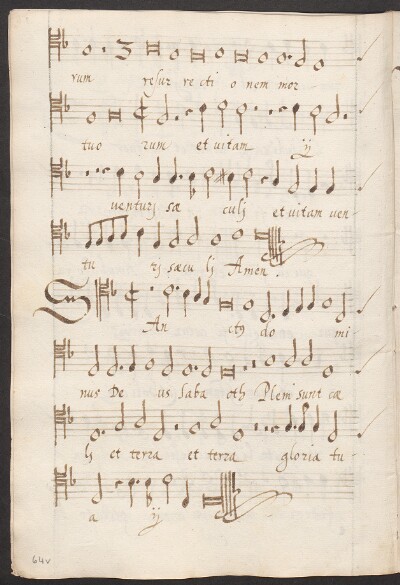 rum resur re cti o nem mor
tuo rum et vitam ij
venturj sæ culj et vitam ven
tu rj sæcu lj Amen.
San An ctus do mi
nus De us Saba oth Plem sunt cæ
lj et terra et terra gloria tu
a ij
64v